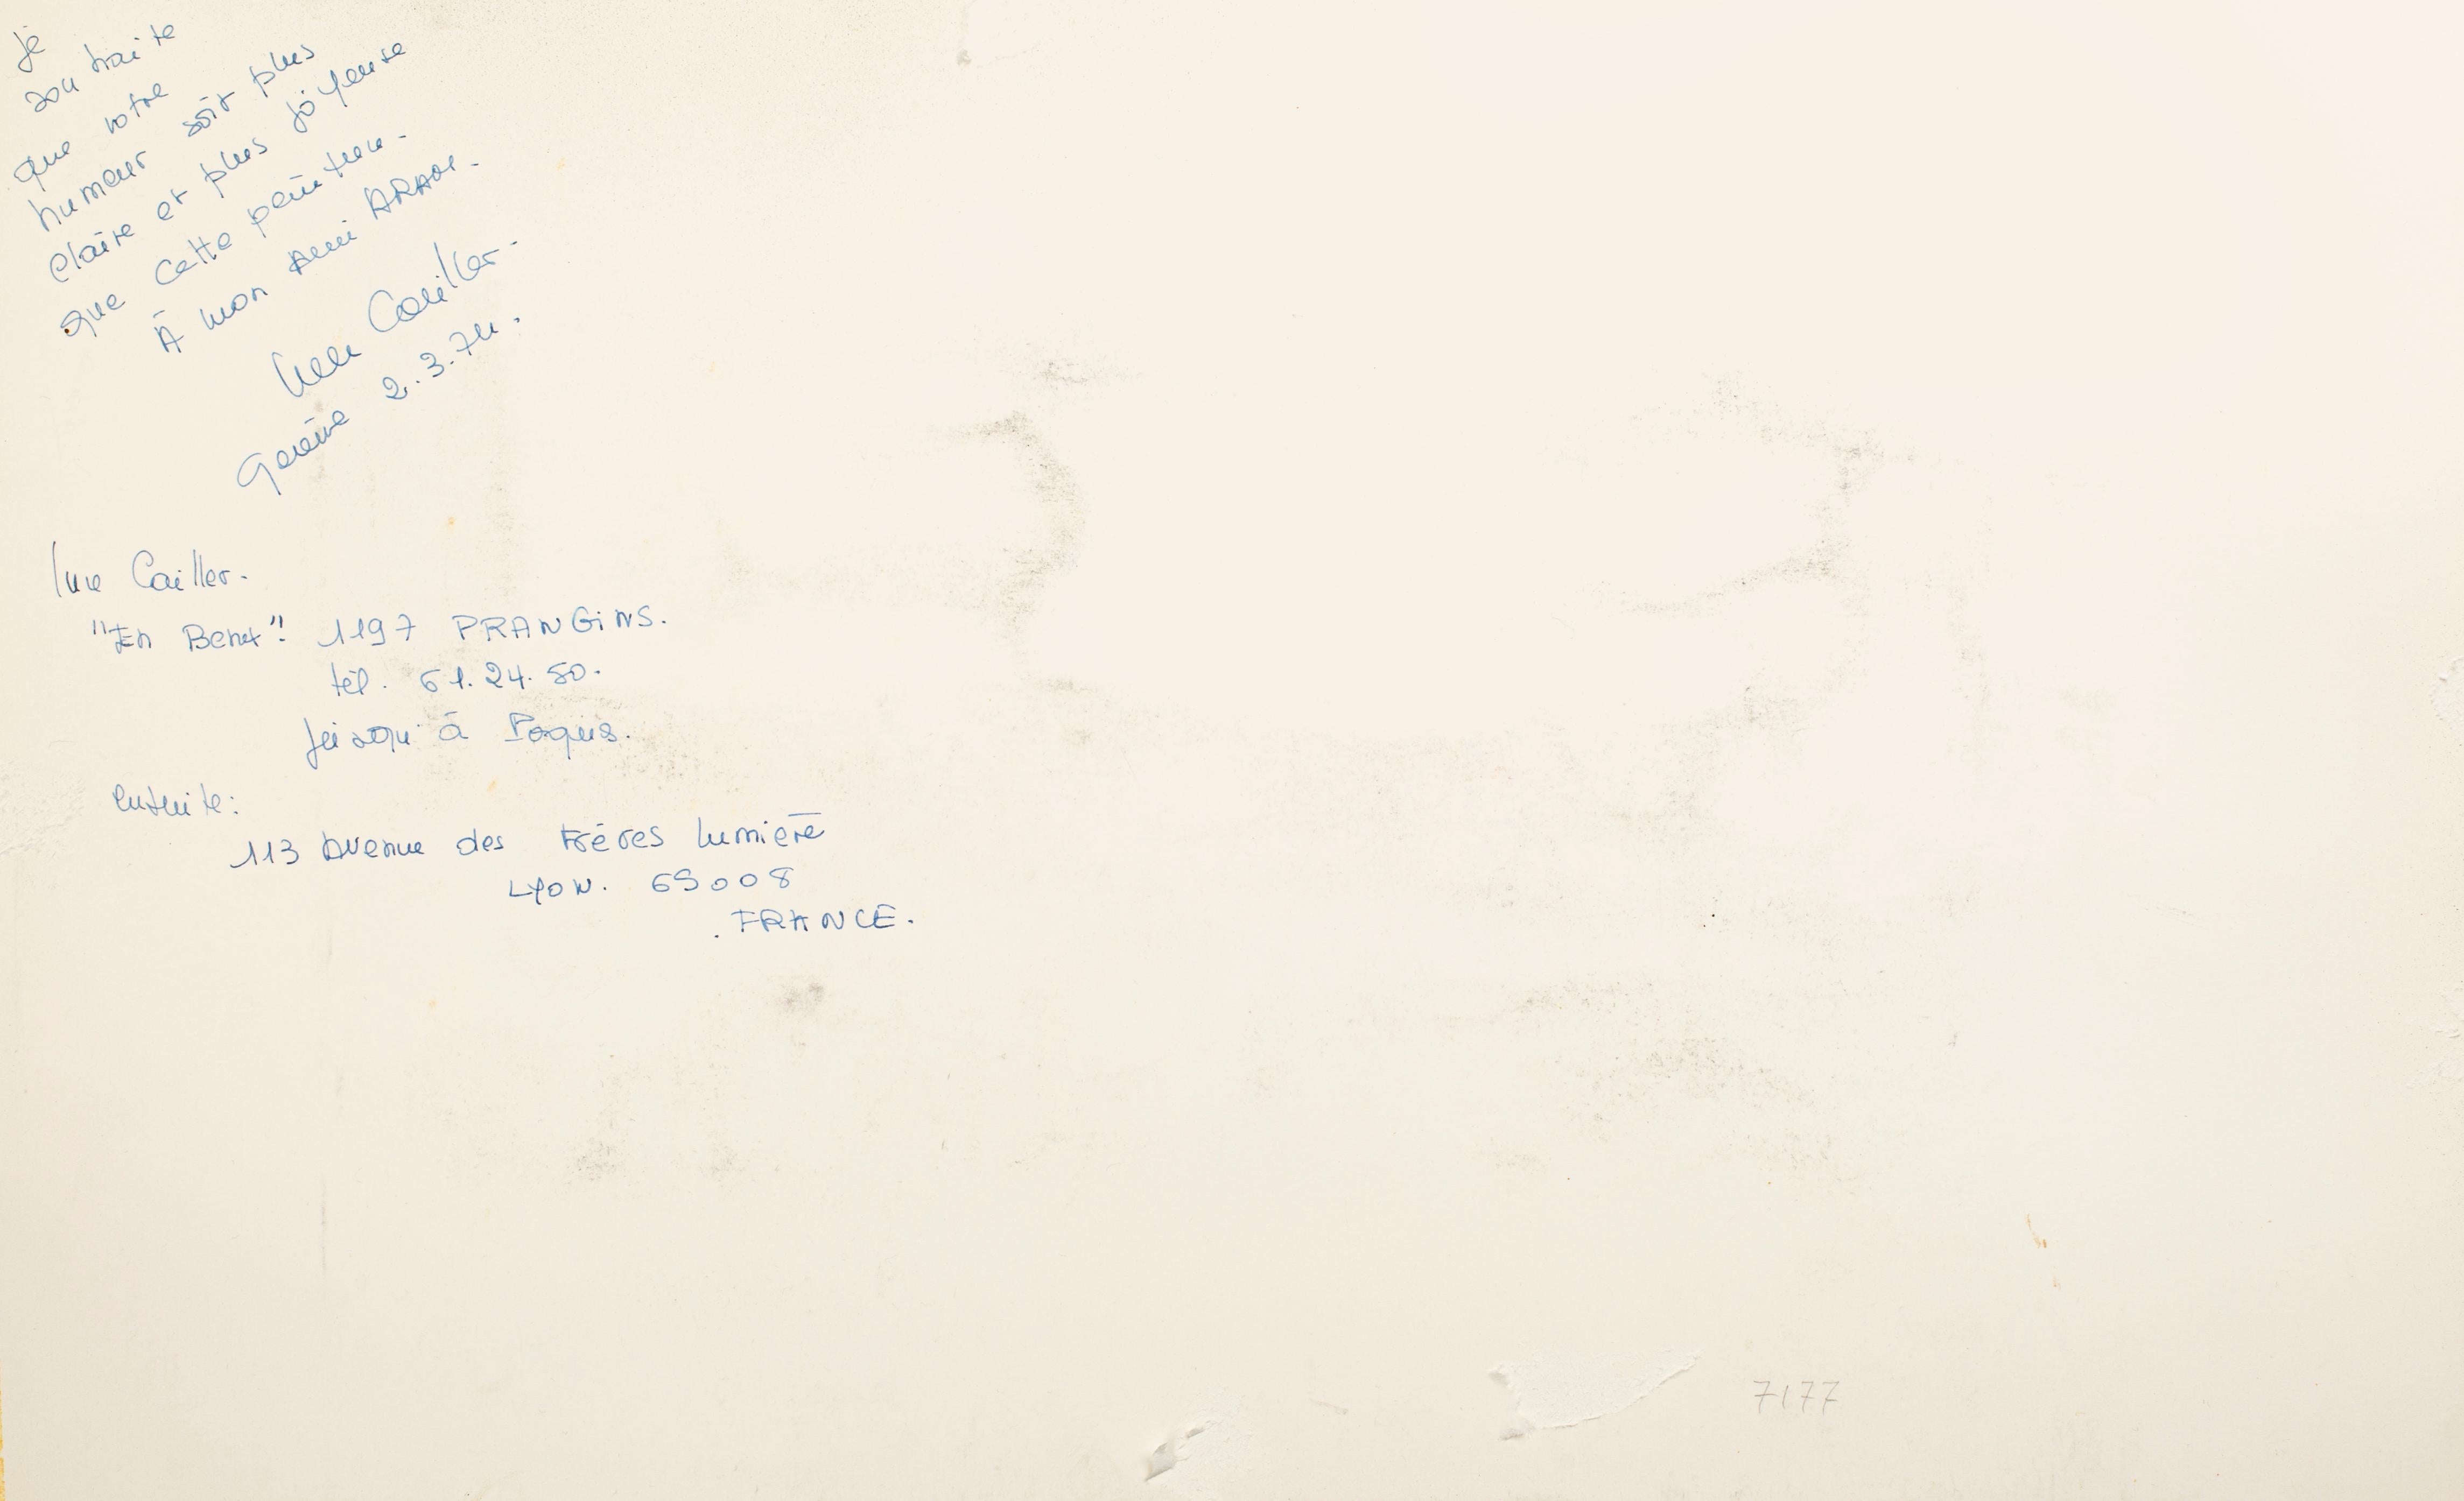 Je
souhaite
que votre
humeur soit plus
claire et plus joyeuse
que cette peinture.
À mon Ami
Cailler.
Genève 2.3.74.
Cailler.
"En Benex". 1197 PRANGINS.
tél. 61.24.50.
jusqu'à Pâques.
ensuite:
113 Avenue des Frères Lumière
LYON. 69008
.FRANCE.
7177